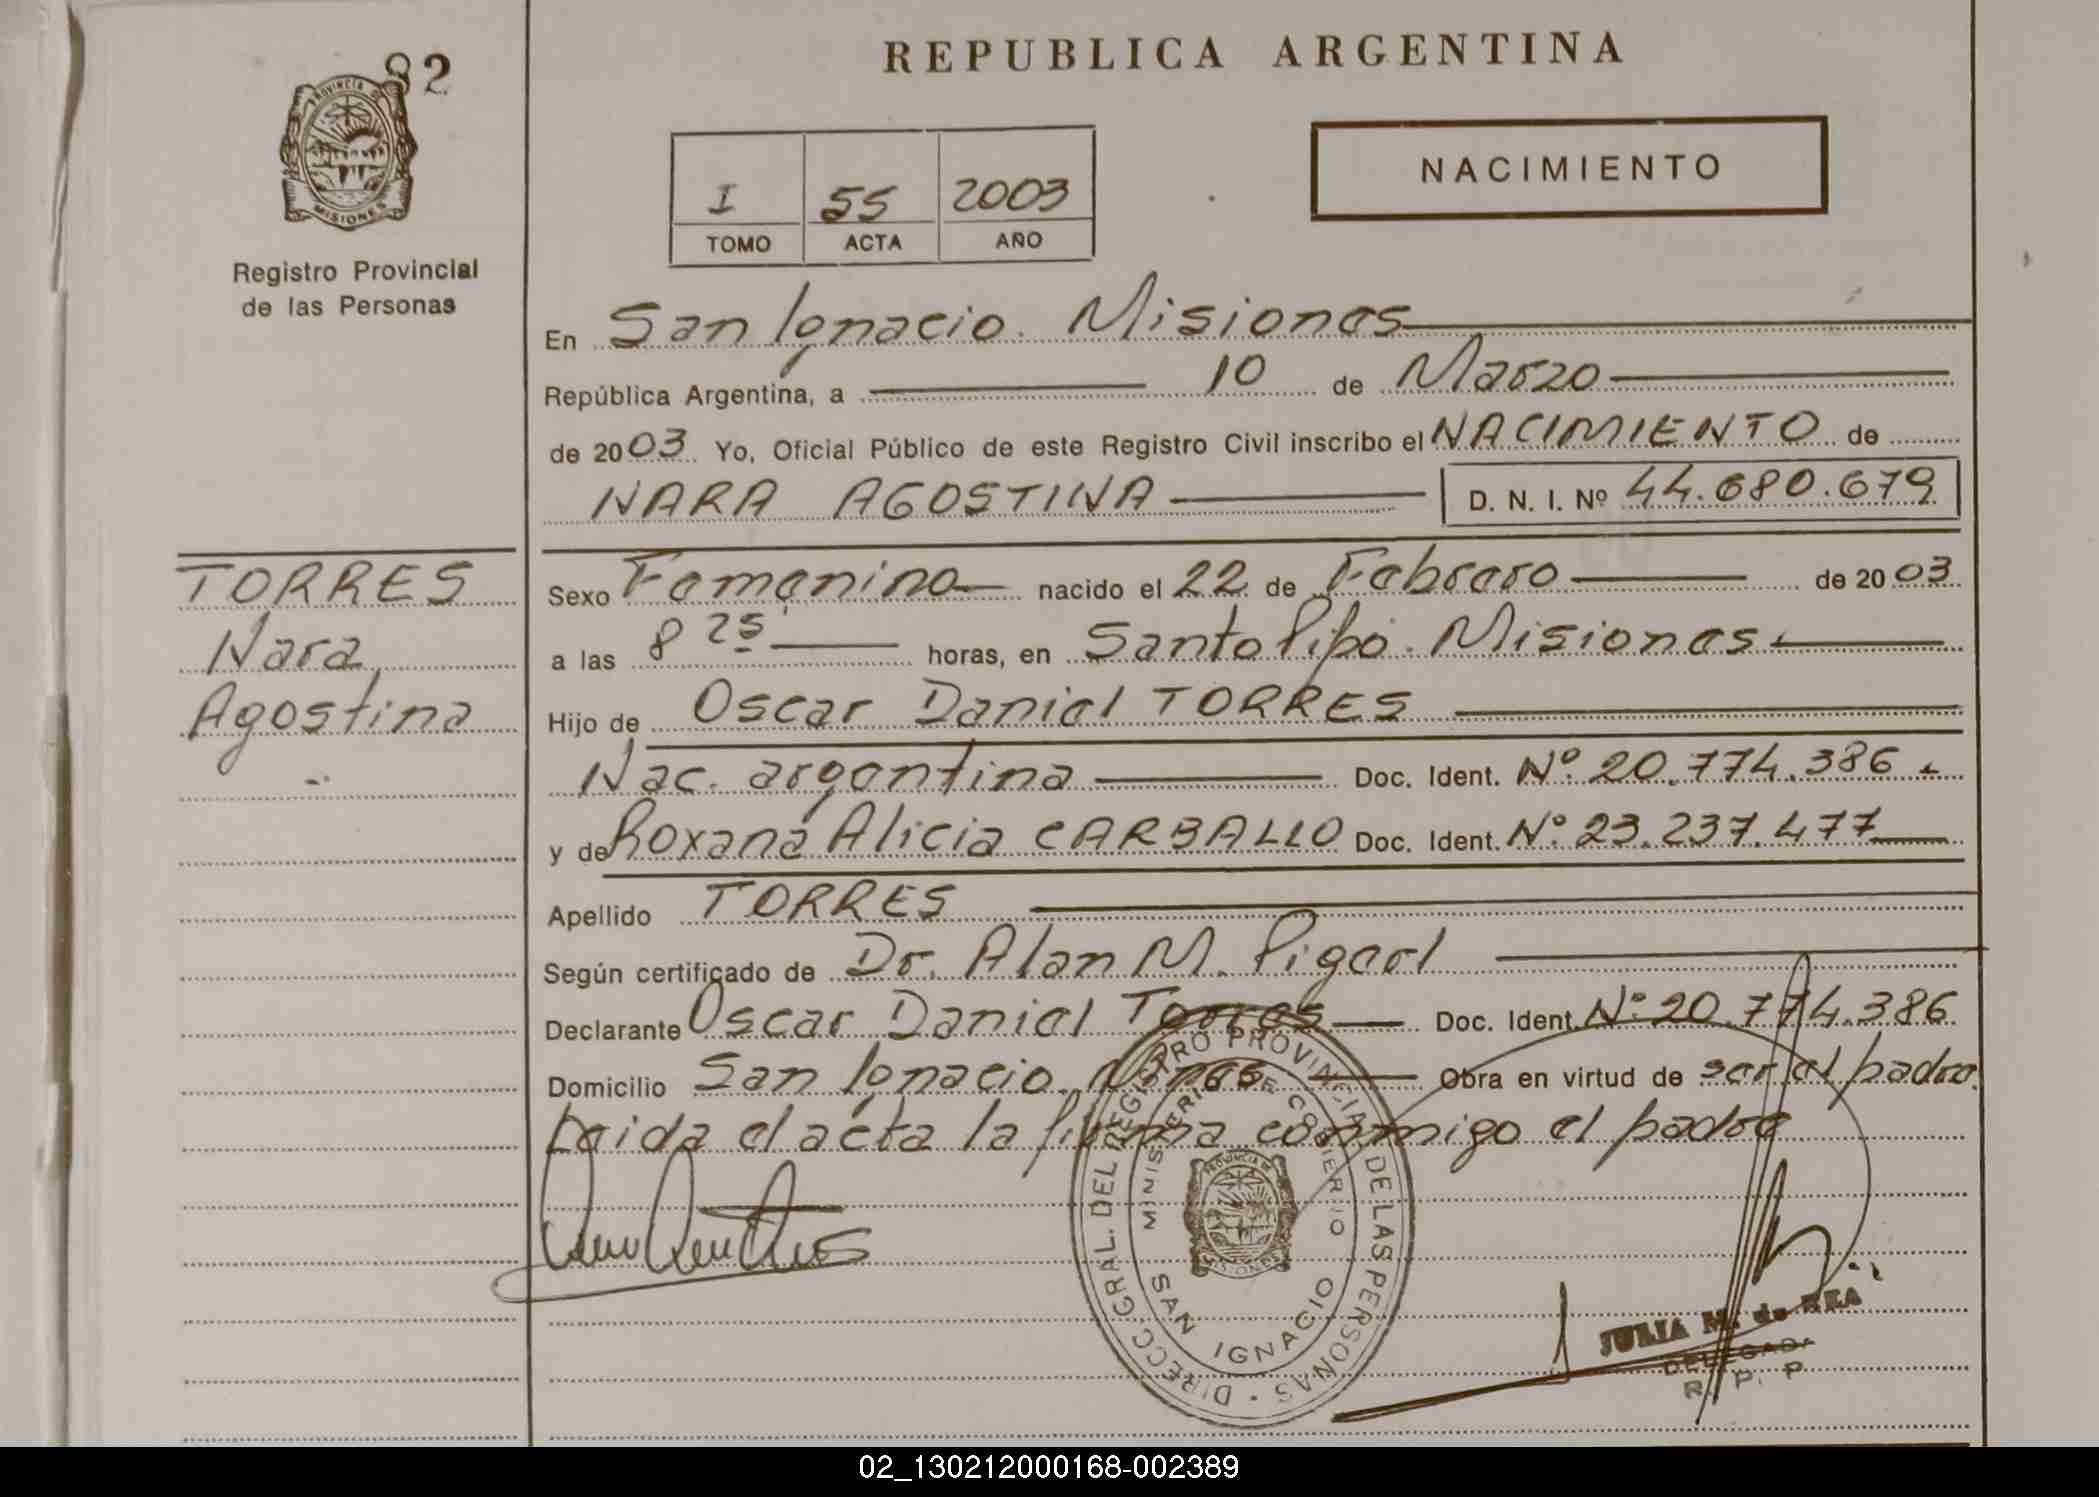 82
PROVINCIA DE
MISIONES
Registro Provincial
de las Personas
REPUBLICA ARGENTINA
I 55 2003
TOMO ACTA AÑO
NACIMIENTO
En San Ignacio. Misiones
República Argentina, a 10 de Marzo
de 2003 Yo, Oficial Público de este Registro Civil inscribo el NACIMIENTO de
NARA AGOSTINA D. N. I. Nº 44.680.679
TORRES
Nara
Agostina
Sexo Femenino nacido el 22 de Febrero de 2003
a las 8 25 horas, en Santo Pipó. Misiones.
Hijo de Oscar Daniel TORRES
Nac. argentina Doc. Ident. Nº 20.774.386.
y de Roxana Alicia CARBALLO Doc. Ident. Nº 23.237.477
Apellido TORRES
Según certificado de Dr. Alan M.
Declarante Oscar Daniel Torres Doc. Ident. Nº 20.774.386
Domicilio San Ignacio Mnes Obra en virtud de ser el padre.
Leida el acta la firma conmigo el padre
DIRECC. GRAL. DEL REGISTRO PROVINCIAL DE LAS PERSONAS
MINISTERIO DE GOBIERNO
PROVINCIA DE
MISIONES
SAN IGNACIO
JULIA M. de REA
DELEGADA
R. P. P.
02_130212000168-002389